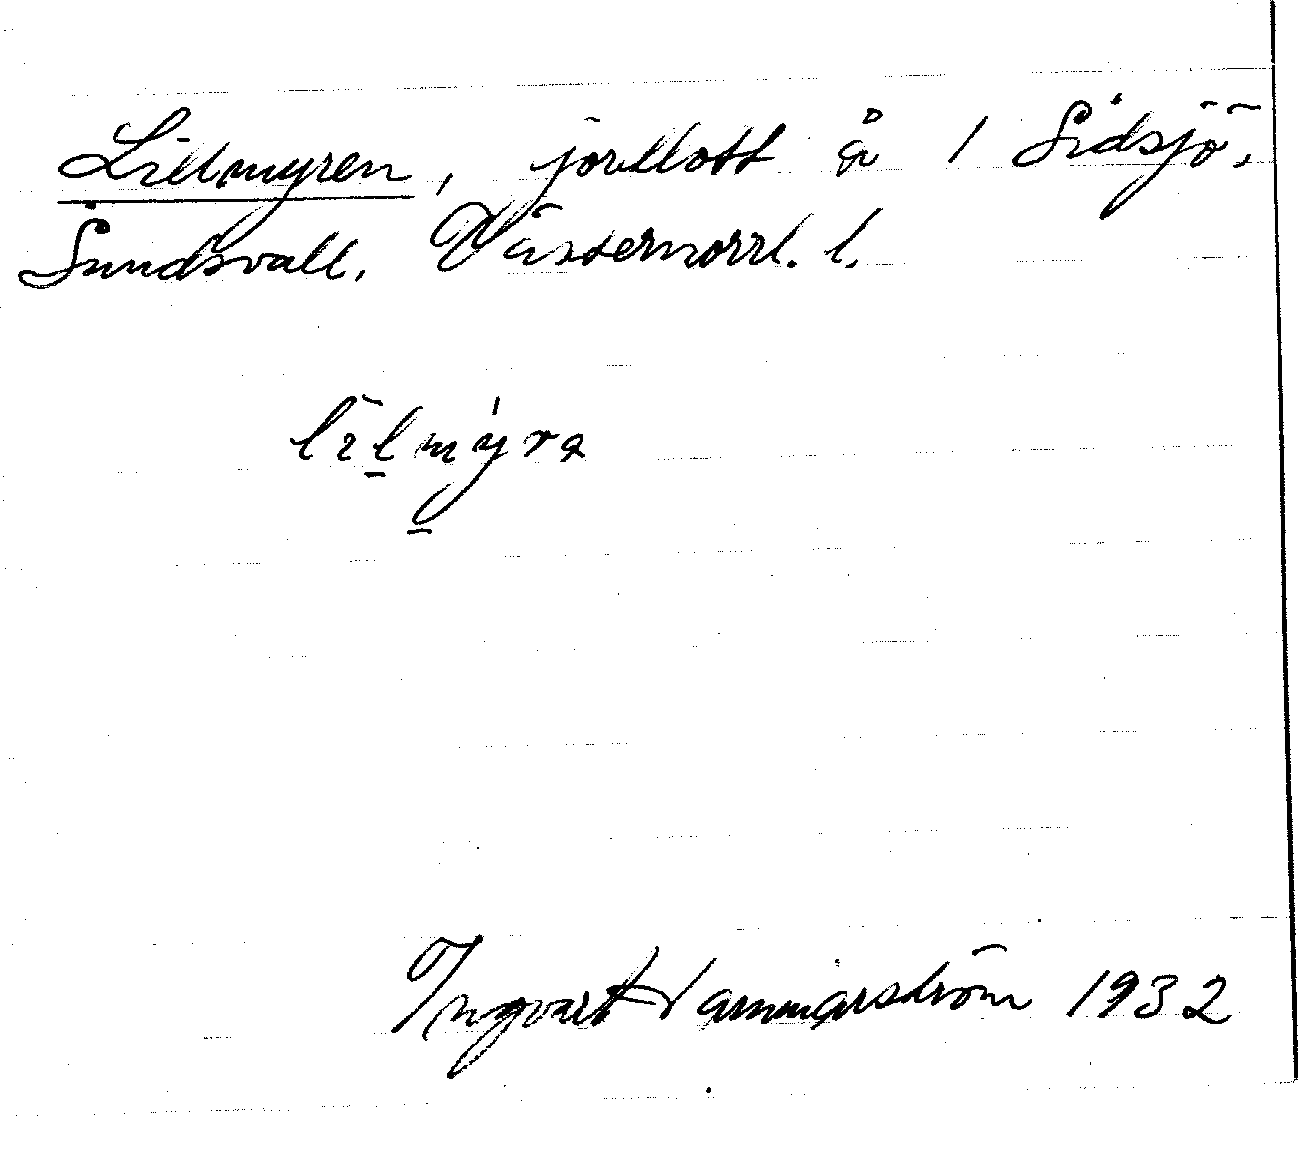 Lillmyren, jordlott å 1 Sidsjö.
Sundsvall. Västernorrl. l.
lilmýra
Ingvart Hammarström 1932